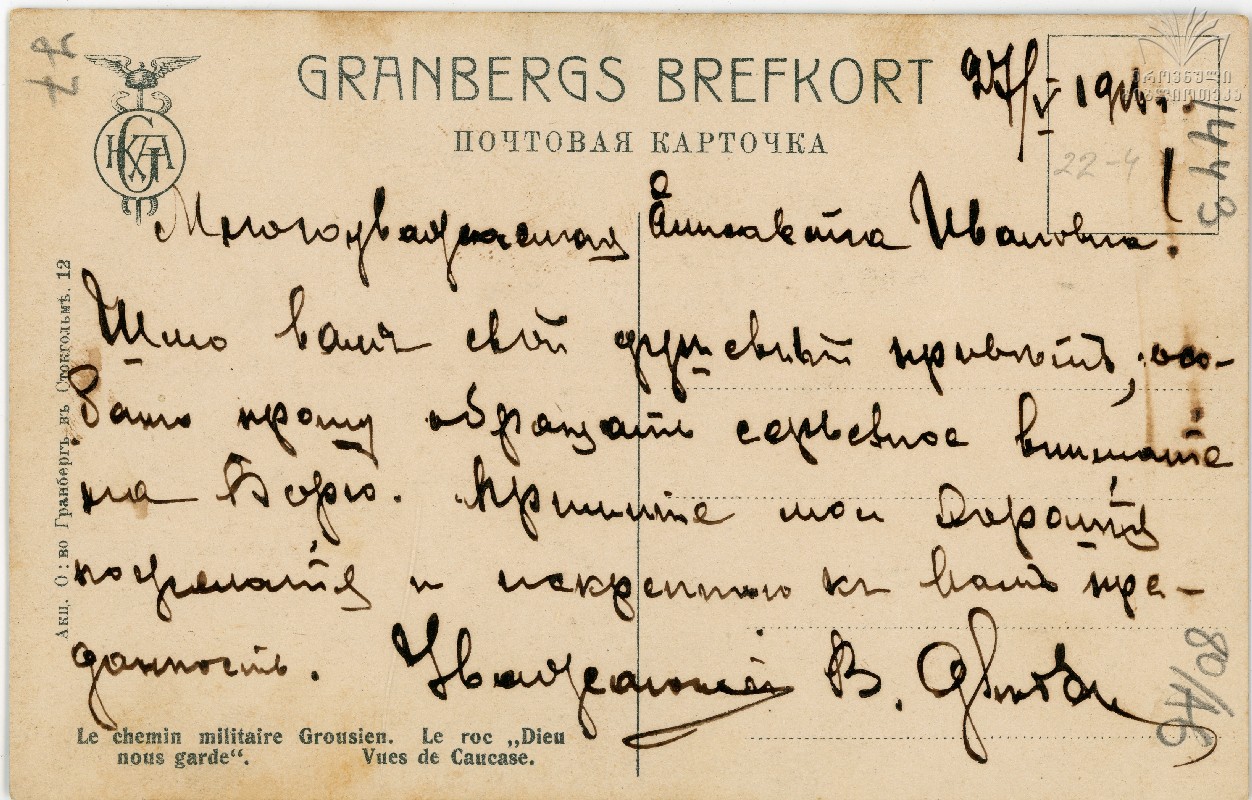 GRANBERGS BREFKORT
ПОЧТОВАЯ КАРТОЧКА
27/V 191
22-4
1443
77
НКГА
Многоуважаемая Елисавета Ивановна!
Шлю вамъ свой душевный привѣтъ, осо-
бано прошу обращать серьезное внимате
на Борю. Примите мои хорошія
пожеланія и искреннюю къ вамъ пре-
данность. Уважающій В.
80/46
Акц. О:во Гранбергъ въ Стокгольмѣ. 12
Le chemin militaire Grousien. Le roc „Dieu
nous garde“. Vues de Caucase.